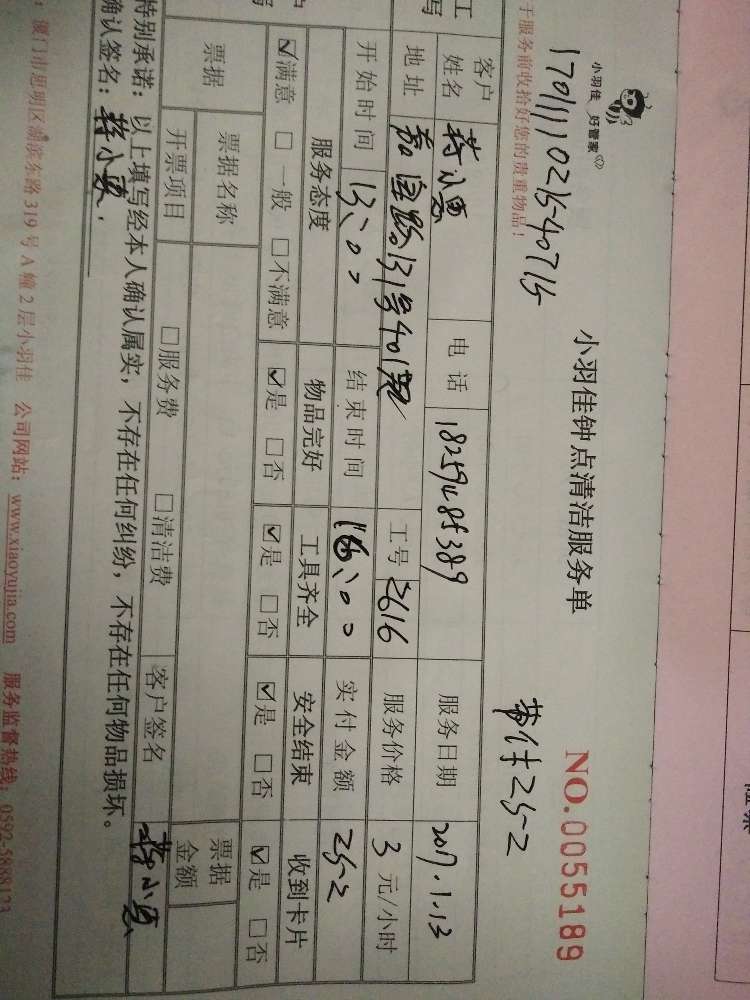 小羽佳 好管家
小羽佳钟点清洁服务单
NO.0055189
于服务前收拾好您的贵重物品!
客户姓名 蒋小惠 电话 18259485389 服务日期 2017.1.13
地址 131号401 工号 2616 服务价格 3 元/小时
开始时间 13:00 结束时间 16:00 实付金额 252
服务态度 物品完好 工具齐全 安全结束 收到卡片
☑满意 □一般 □不满意 ☑是 □否 ☑是 □否 ☑是 □否 ☑是 □否
票据 票据名称 票据金额
开票项目 □服务费 □清洁费 客户签名 蒋小惠
特别承诺:以上填写经本人确认属实,不存在任何纠纷,不存在任何物品损坏。
确认签名:蒋小惠
:厦门市思明区湖滨东路319号A幢2层小羽佳 公司网站:www.xiaoyujia.com 服务监督热线:0592-5888123